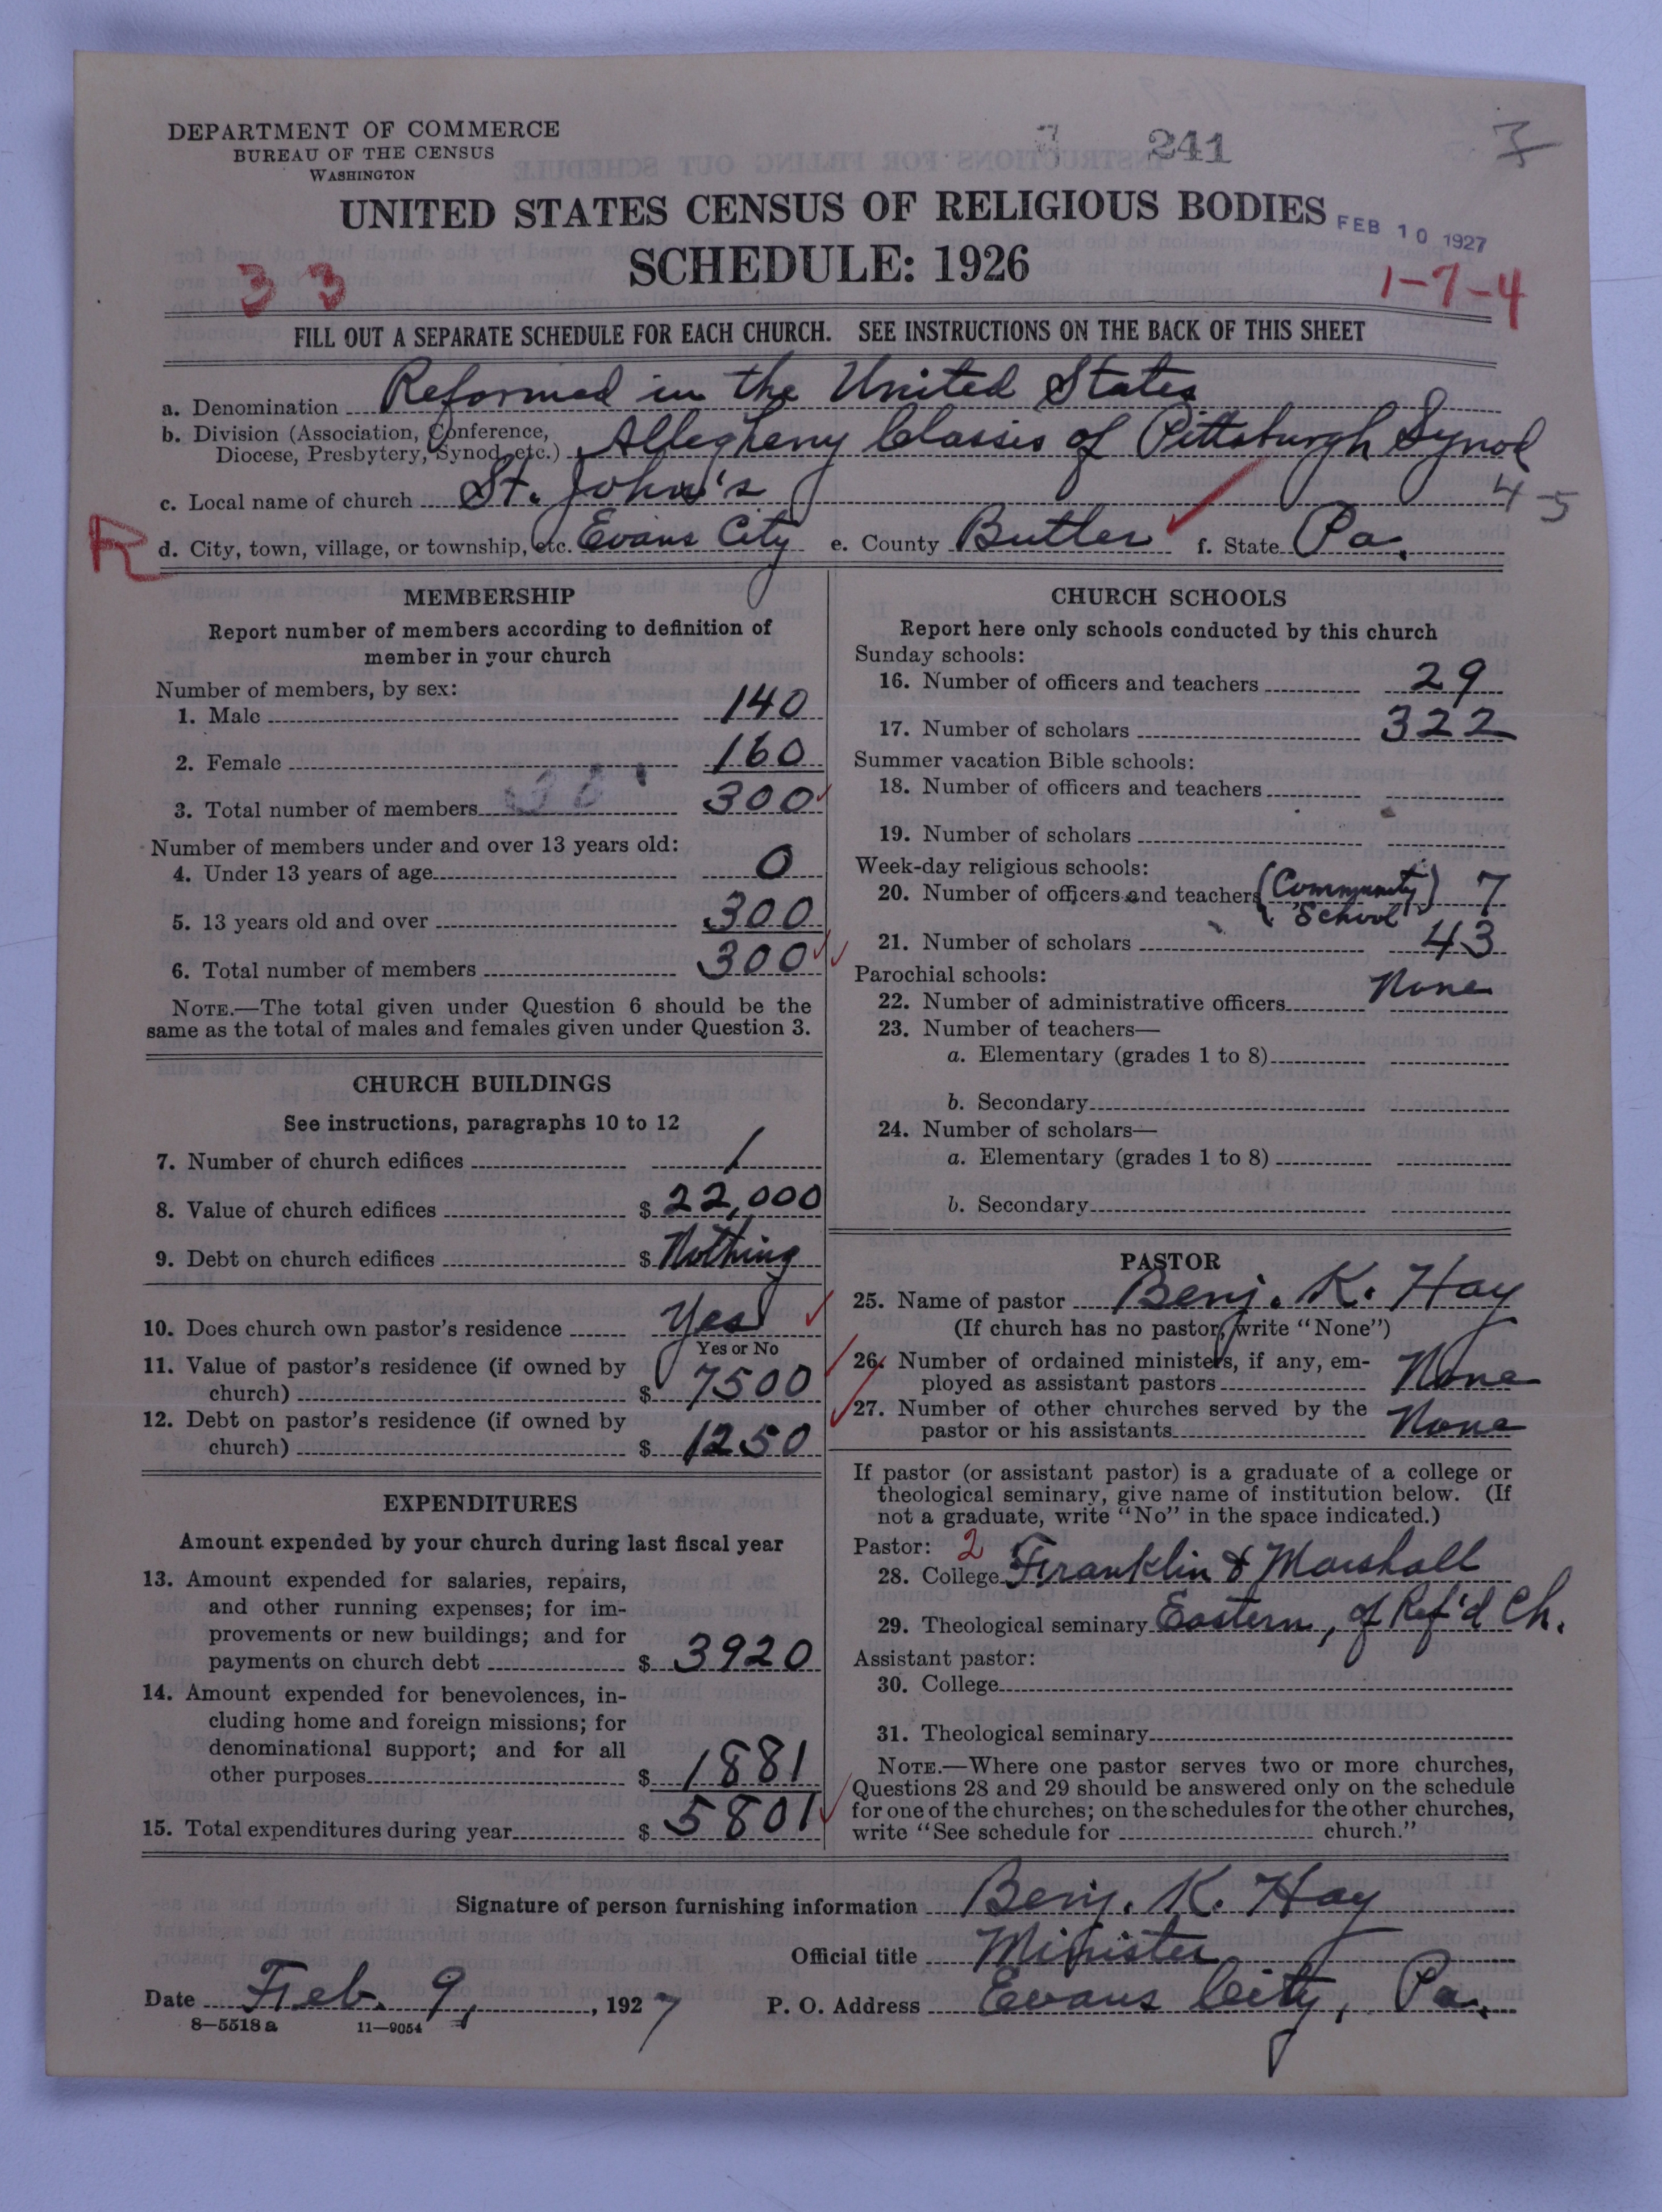 DEPARTMENT OF COMMERCE
BUREAU OF THE CENSUS
WASHINGTON
241
UNITED STATES CENSUS OF RELIGIOUS BODIES
FEB 10 1927
SCHEDULE: 1926
3 3
1-7-4
FILL OUT A SEPARATE SCHEDULE FOR EACH CHURCH. SEE INSTRUCTIONS ON THE BACK OF THIS SHEET
a. Denomination Reformed in the United States
b. Division (Association, Conference, Diocese, Presbytery, Synod, etc.) Allegheny Classis of Pittsburgh Synod
c. Local name of church St. John's
4-5
R
d. City, town, village, or township, etc. Evans City e. County Butler f. State Pa.
MEMBERSHIP
Report number of members according to definition of
member in your church
Number of members, by sex:
1. Male 140
2. Female 160
3. Total number of members 300
Number of members under and over 13 years old:
4. Under 13 years of age 0
5. 13 years old and over 300
6. Total number of members 300
NOTE.—The total given under Question 6 should be the
same as the total of males and females given under Question 3.
CHURCH BUILDINGS
See instructions, paragraphs 10 to 12
7. Number of church edifices 1
8. Value of church edifices $ 22,000
9. Debt on church edifices $ Nothing
10. Does church own pastor's residence Yes
Yes or No
11. Value of pastor's residence (if owned by
church) $ 7500
12. Debt on pastor's residence (if owned by
church) $ 1250
EXPENDITURES
Amount expended by your church during last fiscal year
13. Amount expended for salaries, repairs,
and other running expenses; for im-
provements or new buildings; and for
payments on church debt $ 3920
14. Amount expended for benevolences, in-
cluding home and foreign missions; for
denominational support; and for all
other purposes $ 1881
15. Total expenditures during year $ 5801
CHURCH SCHOOLS
Report here only schools conducted by this church
Sunday schools:
16. Number of officers and teachers 29
17. Number of scholars 322
Summer vacation Bible schools:
18. Number of officers and teachers
19. Number of scholars
Week-day religious schools:
20. Number of officers and teachers (Community School) 7
21. Number of scholars 43
Parochial schools:
22. Number of administrative officers None
23. Number of teachers—
a. Elementary (grades 1 to 8)
b. Secondary
24. Number of scholars—
a. Elementary (grades 1 to 8)
b. Secondary
PASTOR
25. Name of pastor Benj. K. Hay
(If church has no pastor, write "None")
26. Number of ordained ministers, if any, em-
ployed as assistant pastors None
27. Number of other churches served by the
pastor or his assistants None
If pastor (or assistant pastor) is a graduate of a college or
theological seminary, give name of institution below. (If
not a graduate, write "No" in the space indicated.)
Pastor: 2
28. College Franklin & Marshall
29. Theological seminary Eastern, of Ref'd Ch.
Assistant pastor:
30. College
31. Theological seminary
NOTE.—Where one pastor serves two or more churches,
Questions 28 and 29 should be answered only on the schedule
for one of the churches; on the schedules for the other churches,
write "See schedule for church."
Signature of person furnishing information Benj. K. Hay
Official title Minister
Date Feb. 9, 1927 P. O. Address Evans City, Pa.
8—5518 a 11—9054